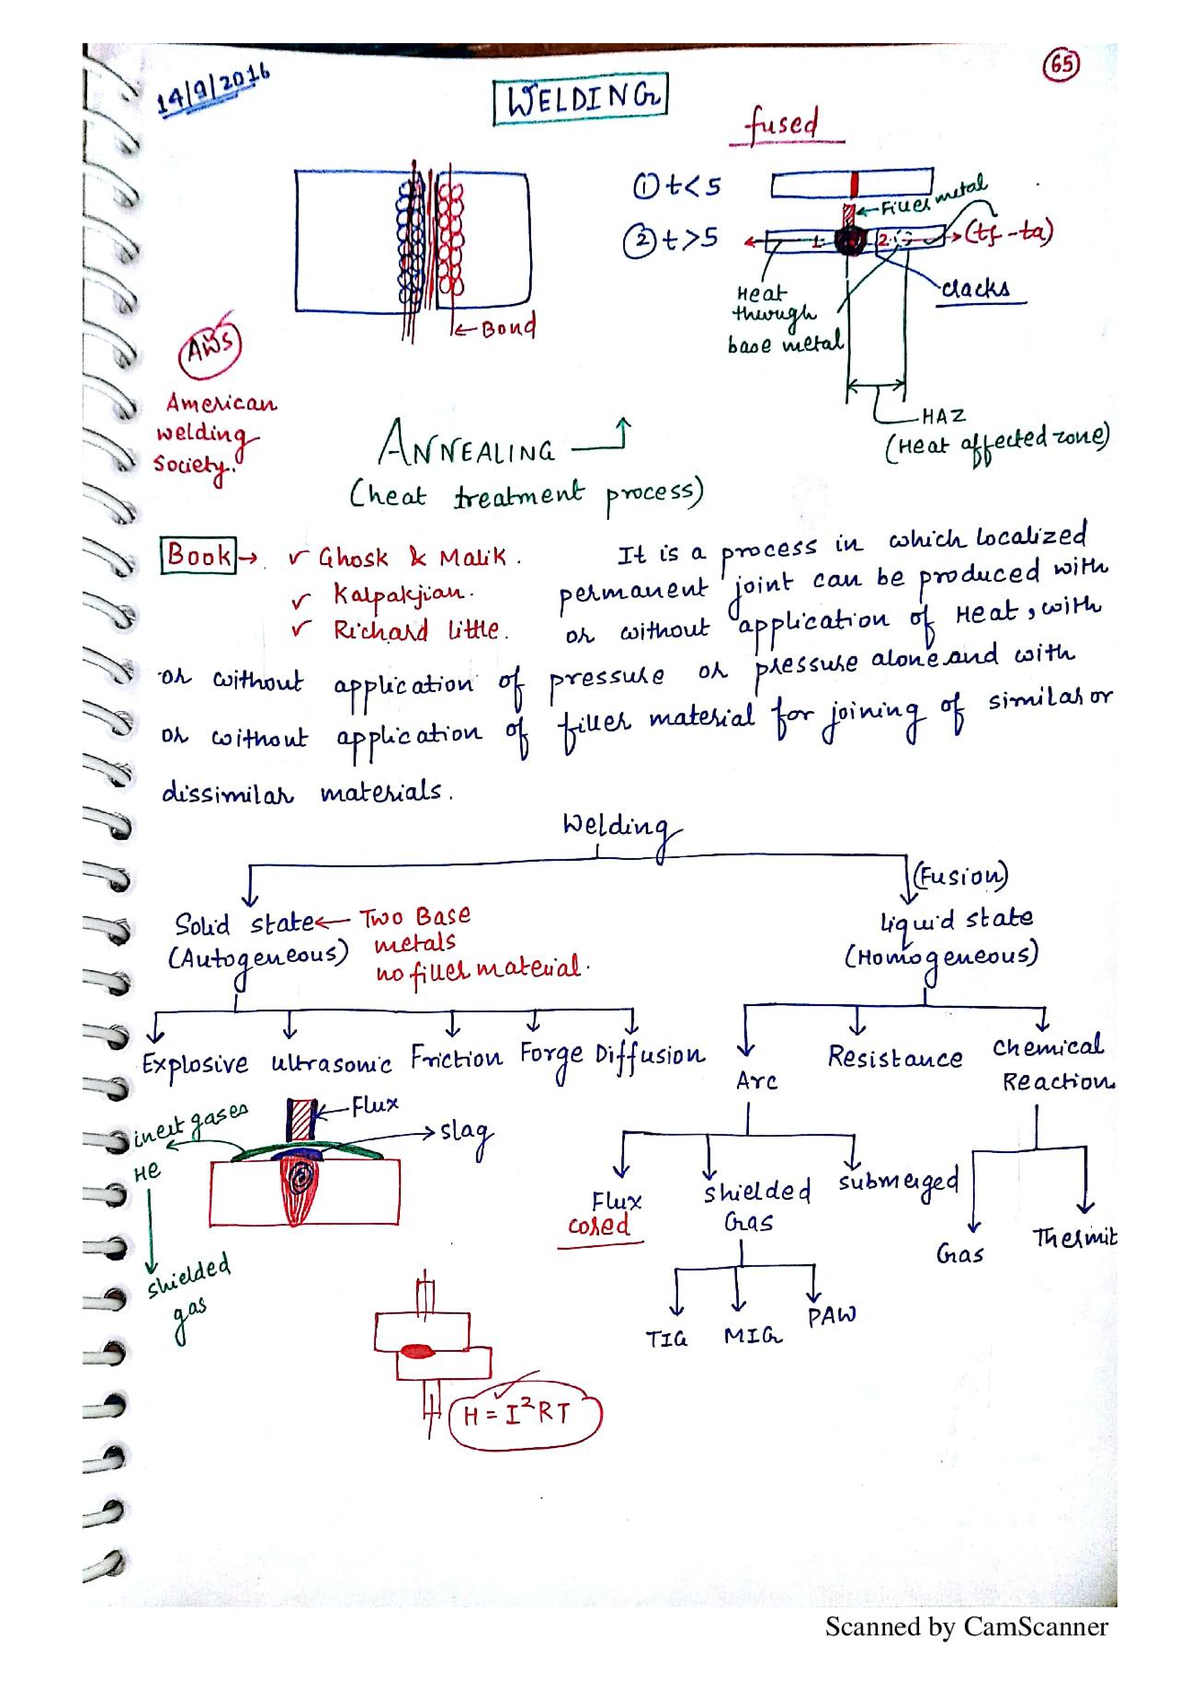 14/9/2016
WELDING
65
fused
① t < 5
Filler metal
② t > 5
1
2
(tf - ta)
Heat through base metal
cracks
Bond
AWS
American
welding
Society.
HAZ
(Heat affected zone)
ANNEALING
(heat treatment process)
Book → ✓ Ghosk & Malik.
✓ Kalpakjian.
✓ Richard little.
It is a process in which localized
permanent joint can be produced with
or without application of Heat, with
or without application of pressure or pressure alone and with
or without application of filler material for joining of similar or
dissimilar materials.
Welding
(Fusion)
Solid state ← Two Base
(Autogeneous) metals
no filler material.
liquid state
(Homogeneous)
Explosive ultrasonic Friction Forge Diffusion
Arc
Resistance
Chemical
Reaction
inert gases
Flux
slag
He
shielded
gas
Flux
cored
shielded
Gas
submerged
Gas
Thermit
TIG MIG PAW
H = I²RT
Scanned by CamScanner